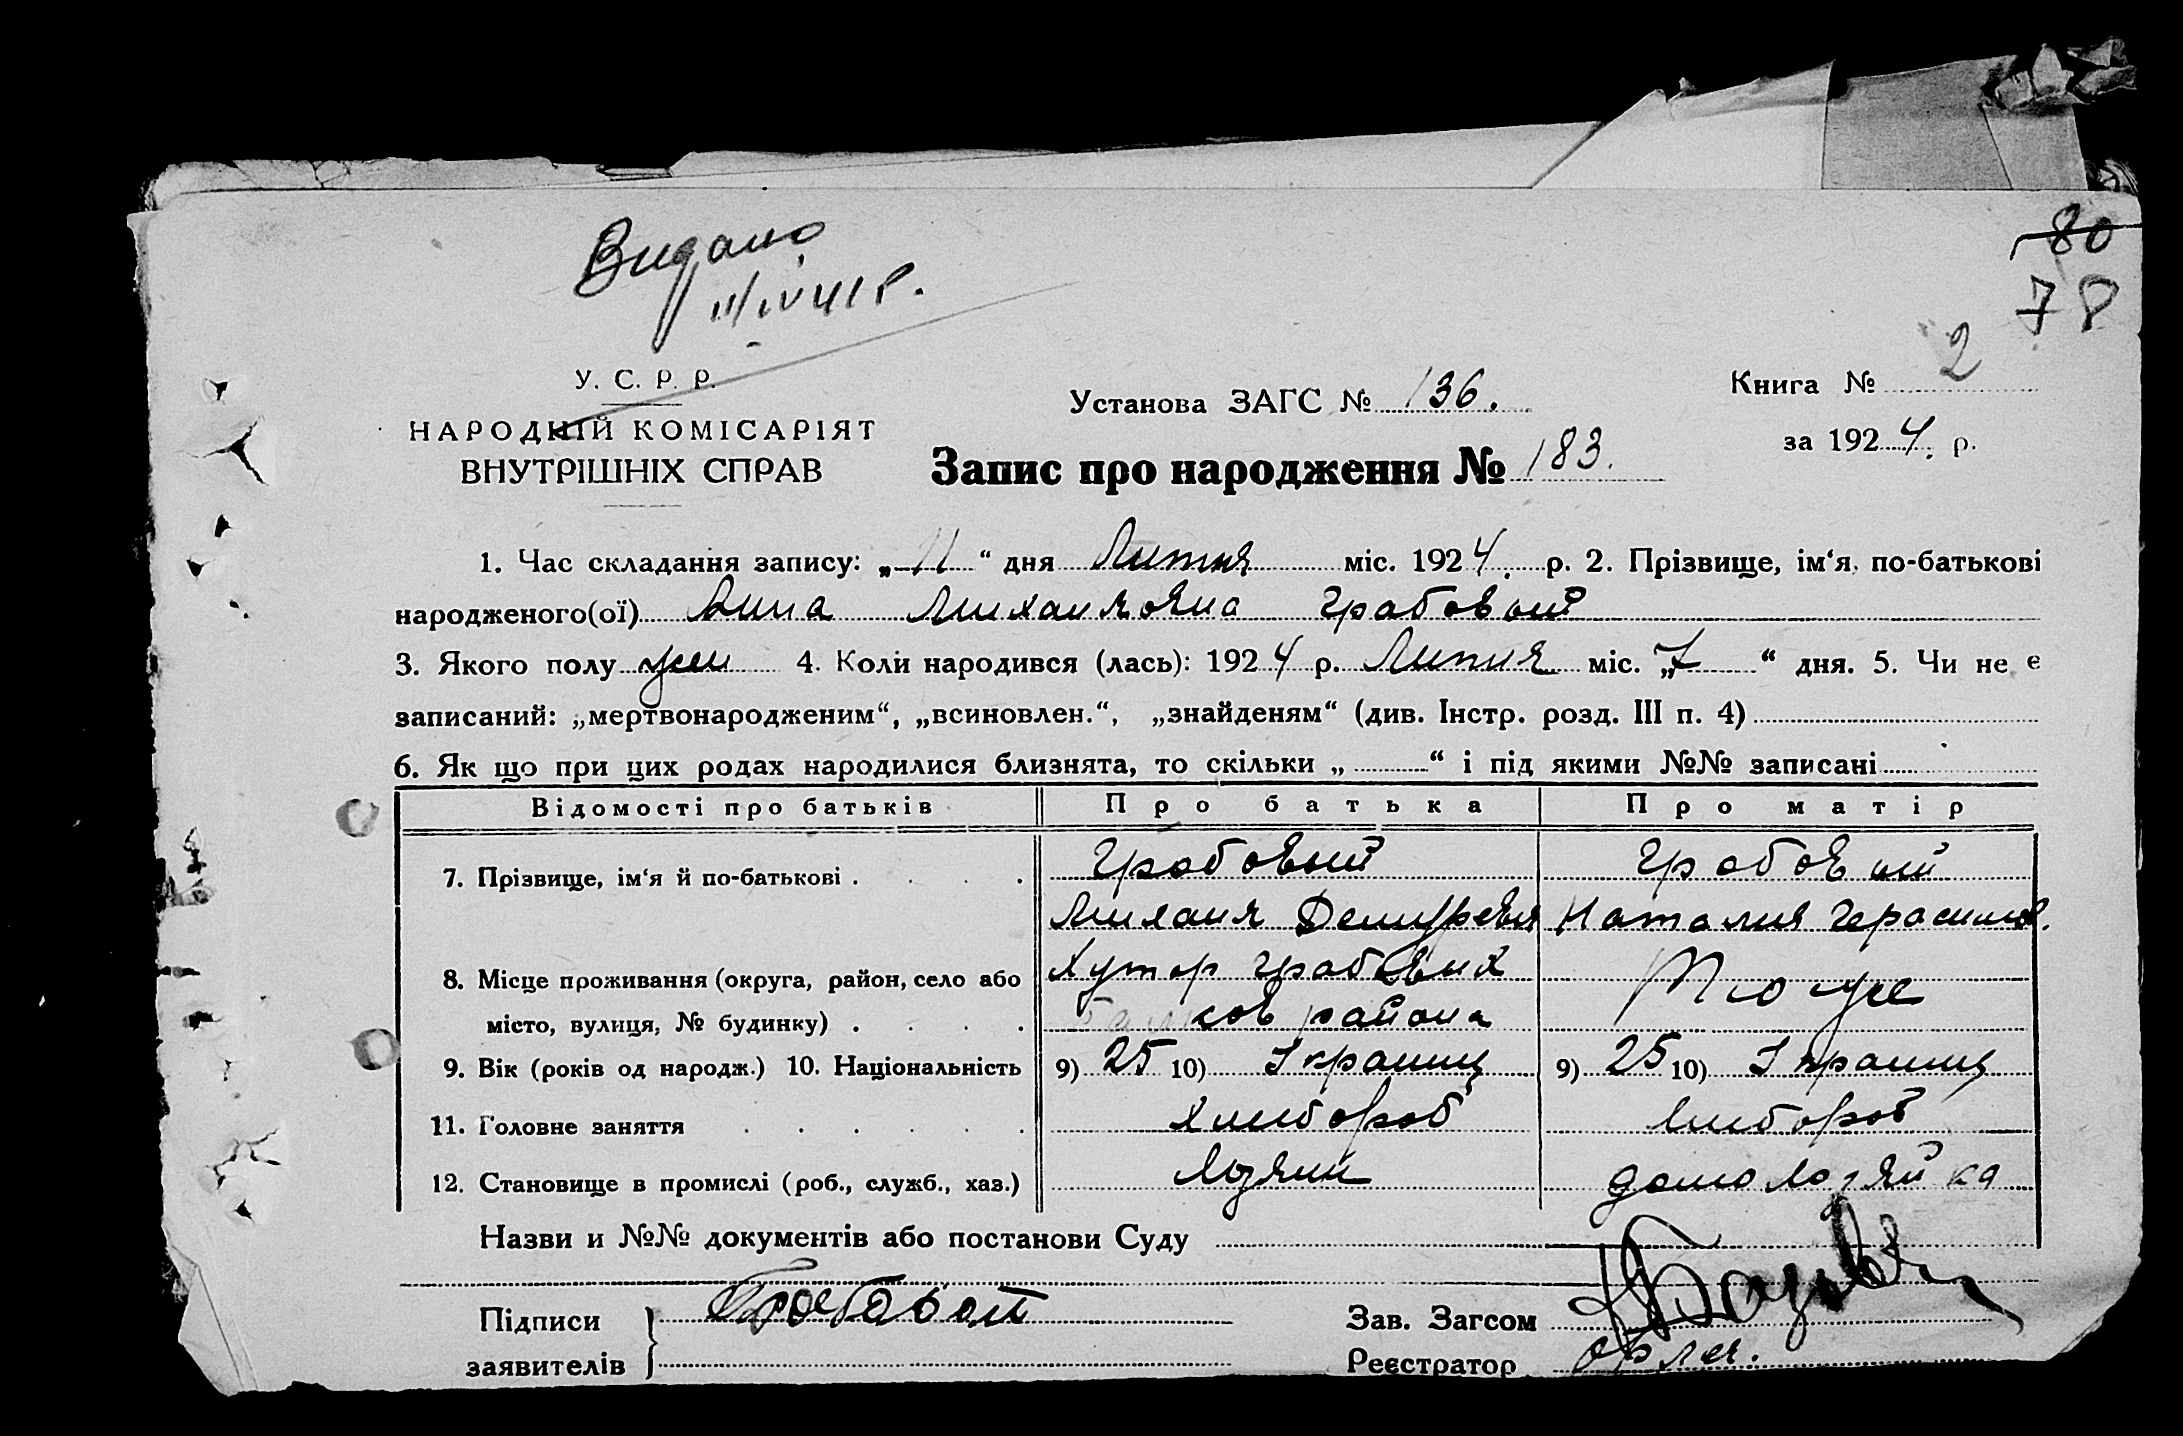 80
78
Видано
11/IV 41 р.
У. С. Р. Р.
НАРОДНІЙ КОМІСАРІЯТ
ВНУТРІШНІХ СПРАВ
Установа ЗАГС № 136.
Запис про народження № 183.
Книга № 2
за 1924. р.
1. Час складання запису: „11“ дня Липня міс. 1924. р. 2. Прізвище, ім‘я, по-батькові
народженого(ої) Анна Михайловна Грабовый
3. Якого полу жен 4. Коли народився (лась): 1924 р. Липня міс. „7“ дня. 5. Чи не є
записаний: „мертвонародженим“, „всиновлен.“, „знайденям“ (див. Інстр. розд. III п. 4)
6. Як що при цих родах народилися близнята, то скільки „ “ і під якими №№ записані
Відомості про батьків Про батька Про матір
7. Прізвище, ім‘я й по-батькові . . . . Грабовый Грабовый
Михаил Наталия Герасимов.
8. Місце проживання (округа, район, село або Хутор Грабовых Тоже
місто, вулиця, № будинку) . . . . района
9. Вік (років од народж.) 10. Національність 9) 25 10) Украинц 9) 25 10) Украинц
11. Головне заняття . . . . . . Хлебороб Хлебороб
12. Становище в промислі (роб., служб., хаз.) Хозяин домохозяйка
Назви и №№ документів або постанови Суду
Підписи Грабовой
заявителів
Зав. Загсом
Реєстратор